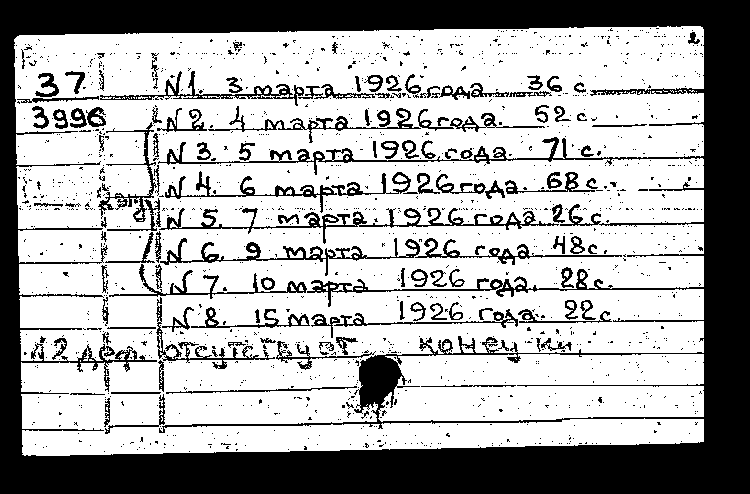 37 N 1. 3 марта 1926 года 36 с.
3996 N 2. 4 марта 1926 года. 52 с.
N 3. 5 марта 1926 года. 71 с.
N 4. 6 марта 1926 года. 68 с.
N 5. 7 марта 1926 года. 26 с.
N 6. 9 марта 1926 года. 48 с.
N 7. 10 марта 1926 года. 28 с.
N 8. 15 марта 1926 года. 22 с.
N 2 деф. отсутствует конец кн.